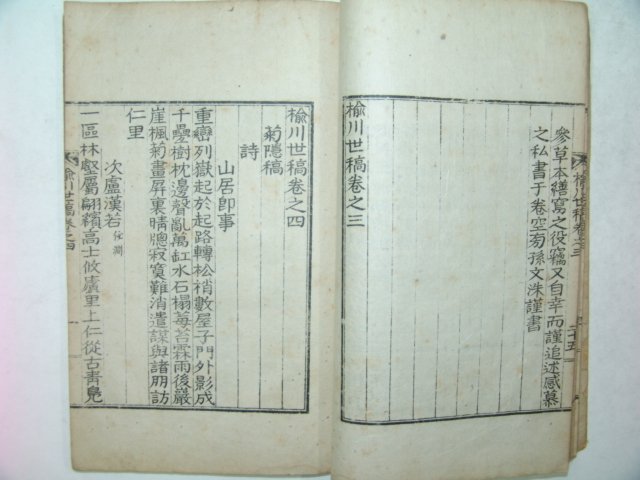 參草本繕寫之役竊又自幸而謹追述感慕
之私書于卷空旁孫文洙謹書
楡川世稿卷之三
楡川世稿卷之三
二十五
楡川世稿卷之四
菊隱稿
詩
山居卽事
重巒列嶽起於起路轉松梢數屋子門外影成
千疊樹枕邊聲亂萬缸水石榻莓苔霖雨後嚴
崖楓菊畫屛裏晴牕寂寞難消遣謀與諸朋訪
仁里
次盧漢若
一區林壑屬翩繽高士攸廣里上仁從古靑
楡川世稿卷之四